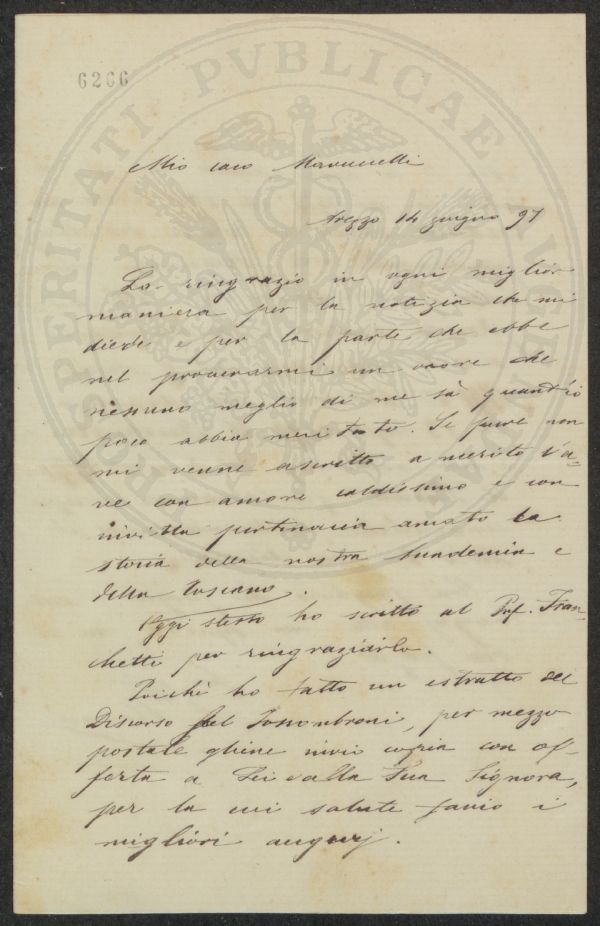 6266
PROSPERITATI PVBLICAE AVGENDAE
Mio caro
Arezzo 14 giugno 97
La ringrazio in ogni miglior
maniera per la notizia che mi
diede e per la parte che ebbe
nel procurarmi un onore che
nessuno meglio di me sà quant'io
poco abbia meritato. Se pure non
mi venne ascritto a merito l'a-
ver con amore caldissimo e con
invitta pertinacia amato la
storia della nostra Accademia e
della Toscana.
Oggi stesso ho scritto al Prof. Fran-
chetti per ringraziarlo.
Poichè ho fatto un estratto del
Discorso del Fossombroni, per mezzo
postale gliene invio copia con of-
ferta a Lei e alla Sua Signora,
per la cui salute faccio i
migliori augurj.